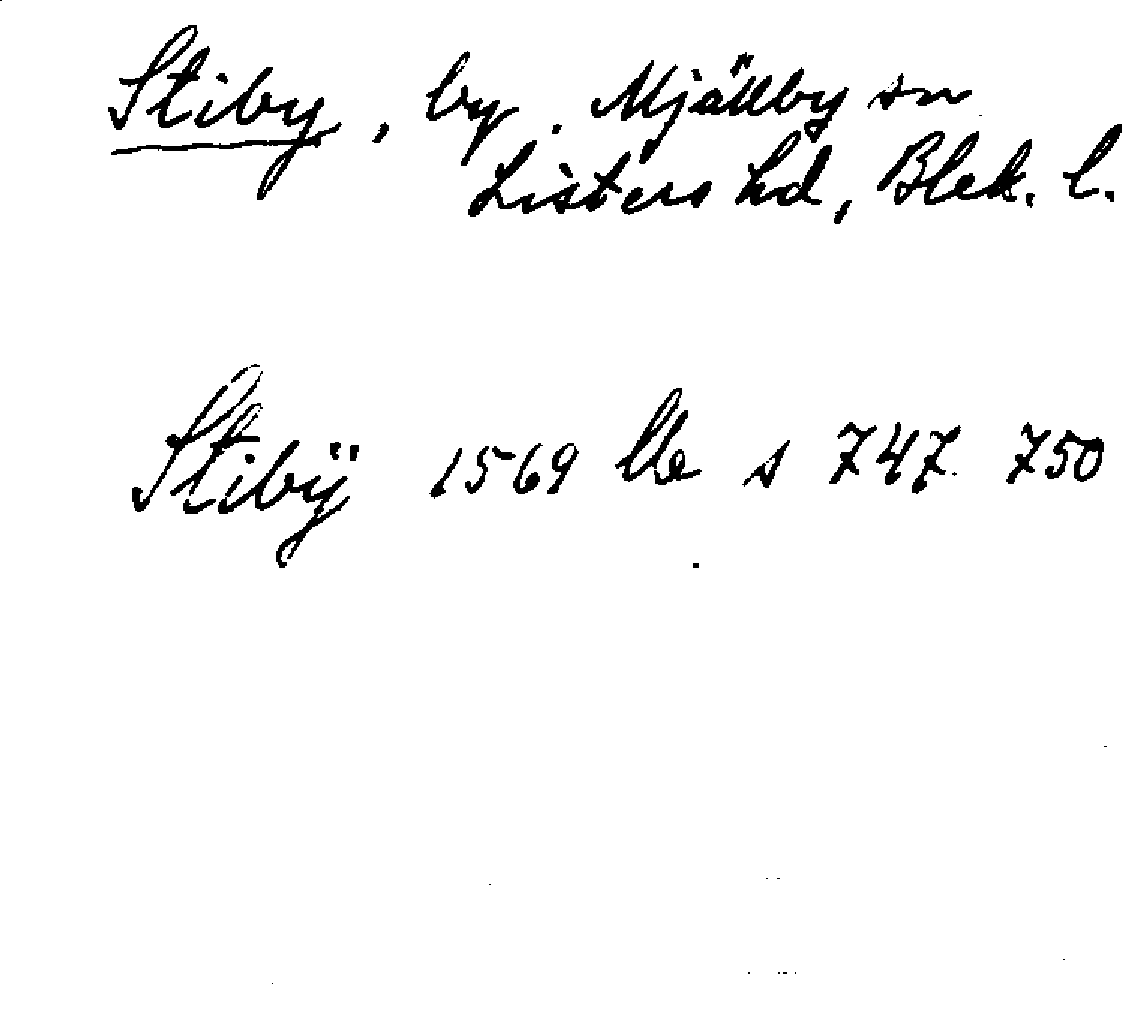 Stiby, by. Mjällby sn
Listers hd, Blek. l.
Stibÿ 1569 Lb s 747 750